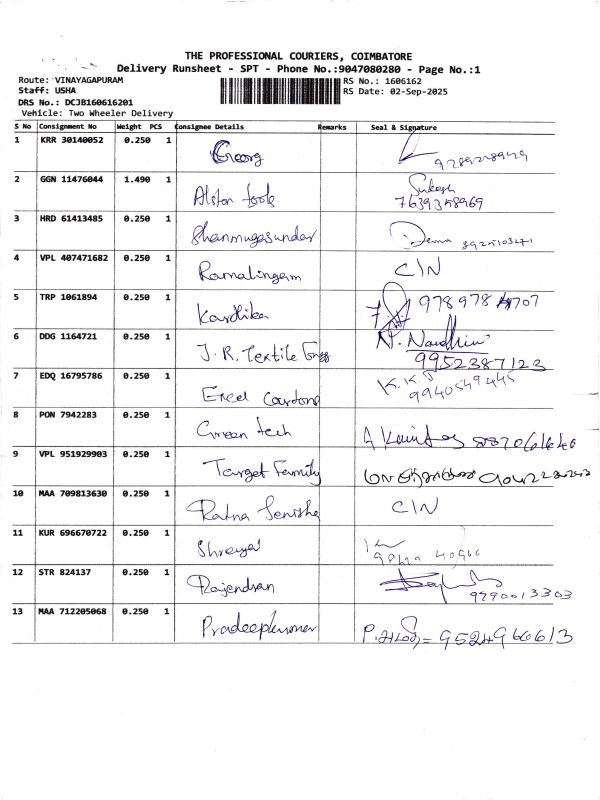 THE PROFESSIONAL COURIERS, COIMBATORE
Delivery Runsheet - SPT - Phone No.:9047080280 - Page No.:1
Route: VINAYAGAPURAM
RS No.: 1606162
Staff: USHA
RS Date: 02-Sep-2025
DRS No.: DCJB160616201
Vehicle: Two Wheeler Delivery
S No Consignment No Weight PCS Consignee Details Remarks Seal & Signature
1 KRR 30140052 0.250 1 Georg
2 GGN 11476044 1.490 1 Alston tools Sukesh
7639358969
3 HRD 61413485 0.250 1 Shanmugasundar
4 VPL 407471682 0.250 1 Ramalingam C/N
5 TRP 1061894 0.250 1 Karthika
6 DDG 1164721 0.250 1 J.R. Textile Engg
9952387123
7 EDQ 16795786 0.250 1 Excel Cartons K.K.J
9940549445
8 PON 7942283 0.250 1 Green tech
9 VPL 951929903 0.250 1 Target Family
10 MAA 709813630 0.250 1 Ratna C/N
11 KUR 696670722 0.250 1 Shreyas
12 STR 824137 0.250 1 Rajendran
9790013303
13 MAA 712205068 0.250 1 Pradeepkumar 9524966613